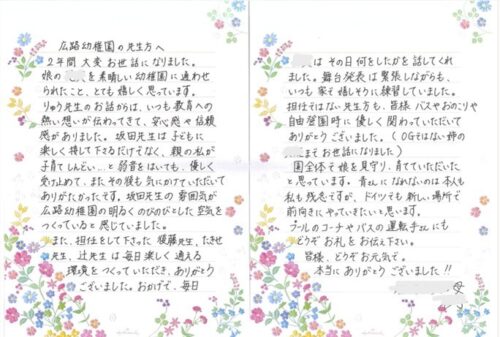 広路幼稚園の先生方へ
2年間大変お世話になりました。
娘の を素晴しい幼稚園に通わせ
られたこと、とても嬉しく思っています。
りゅう先生のお話からは、いつも教育への
熱い想いが伝わってきて、安心感や信頼
感がありました。坂田先生は子どもに
楽しく接して下さるだけでなく、親の私が
子育てしんどい…と弱音をはいても、優しく
受け止めて、またその後も気にかけていただいて
ありがたかったです。坂田先生の雰囲気が
広路幼稚園の明るくのびのびとした空気を
つくっていると感じていました。
また、担任をして下さった 後藤先生、たきせ
先生、辻先生は毎日楽しく通える
環境をつくっていただき、ありがとう
ございました。おかげで、毎日
はその日何をしたかを話してくれ
ました。舞台発表は緊張しながらも、
いつも家で嬉しそうに練習していました。
担任ではない先生方も、皆様バスやおのこりや
自由登園時に優しく関わっていただいて
ありがとうございました。(OGではない姉の
までお世話になりました)
園全体で娘を見守り、育てていただいた
と思っています。青さんになれないのは本人も
私も残念ですが、ドイツでも新しい場所で
前向きにやっていきたいと思います。
プールのコーチやバスの運転手さんにも
どうぞお礼をお伝え下さい。
皆様、どうぞお元気で。
本当にありがとうございました!!